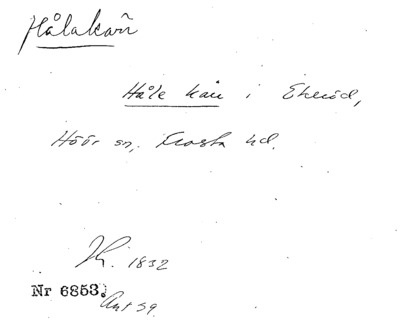 Hålakañ
Håle kañ i Ekeröd,
Höör sn, Frosta hd.
1832
Nr 6853.
Ant 59